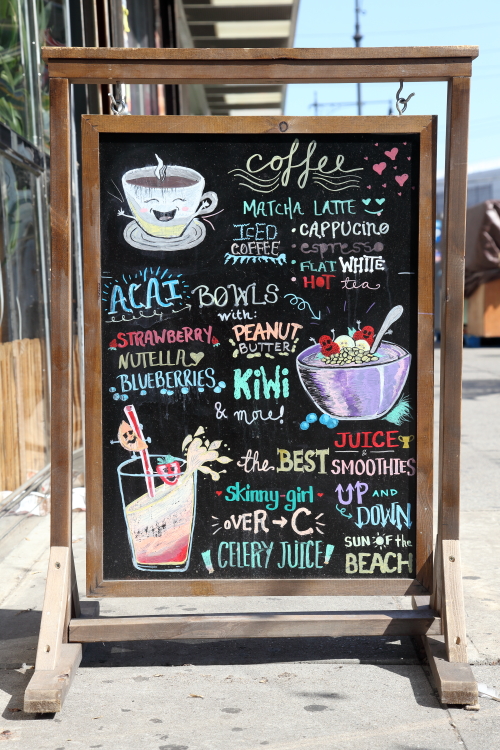 coffee
MATCHA LATTE
ICED COFFEE
• CAPPUCINO
• espresso
• FLAT WHITE
• HOT tea
AÇAI BOWLS
with:
STRAWBERRY
NUTELLA
BLUEBERRIES
PEANUT
BUTTER
KiWi
& more!
the BEST
JUICE
&
SMOOTHIES
skinny-girl
OVER → C
CELERY JUICE!
UP AND
DOWN
SUN OF the
BEACH